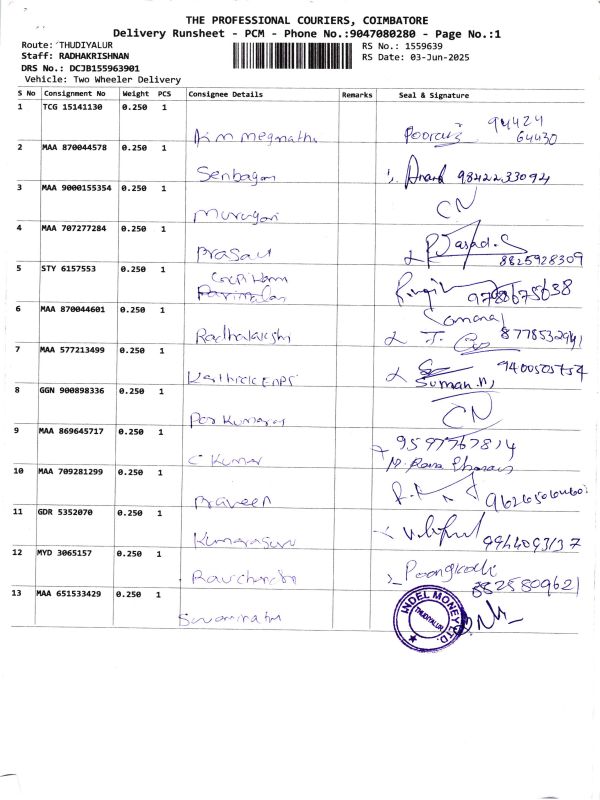 THE PROFESSIONAL COURIERS, COIMBATORE
Delivery Runsheet - PCM - Phone No.:9047080280 - Page No.:1
Route: THUDIYALUR RS No.: 1559639
Staff: RADHAKRISHNAN RS Date: 03-Jun-2025
DRS No.: DCJB155963901
Vehicle: Two Wheeler Delivery
S No Consignment No Weight PCS Consignee Details Remarks Seal & Signature
1 TCG 15141130 0.250 1 94424
64430
2 MAA 870044578 0.250 1 Senbagam Anand 9842233094
3 MAA 9000155354 0.250 1 Murugan CN
4 MAA 707277284 0.250 1 Prasad Prasad.S
8825928309
5 STY 6157553 0.250 1 9788675638
6 MAA 870044601 0.250 1 Radhalakshmi 8778532941
7 MAA 577213499 0.250 1 9400505754
Suman.M
8 GGN 900898336 0.250 1 Por Kumaran CN
9 MAA 869645717 0.250 1 C Kumar 9597767814
10 MAA 709281299 0.250 1 Praveen
11 GDR 5352070 0.250 1 Kumaraguru 9944093137
12 MYD 3065157 0.250 1 Ravichandran Poongkodi
8825809621
13 MAA 651533429 0.250 1 Swaminathan
INDEL MONEY LTD.
THUDIYALUR